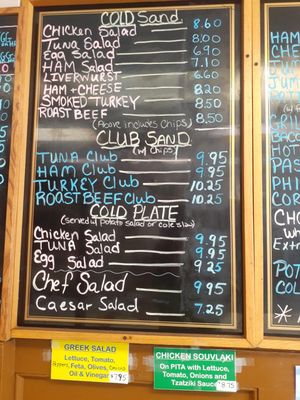 COLD Sand
Chicken Salad 8.60
Tuna Salad 8.00
Egg Salad 6.90
HAM Salad 7.10
LIVERWURST 6.60
HAM + CHEESE 8.20
SMOKED TURKEY 8.50
ROAST BEEF 8.50
(Above includes Chips)
CLUB SAND
(w/ Chips)
TUNA Club 9.95
HAM Club 9.95
TURKEY Club 10.25
ROAST BEEF Club 10.25
COLD PLATE
(served w/ potato salad or cole slaw)
Chicken Salad 9.95
TUNA Salad 9.95
Egg Salad 9.25
Chef Salad 9.95
Caesar Salad 7.25
GREEK SALAD
Lettuce, Tomato,
Feta, Olives,
Oil & Vinegar $7.95
CHICKEN SOUVLAKI
On PITA with Lettuce,
Tomato, Onions and
Tzatziki Sauce $8.75